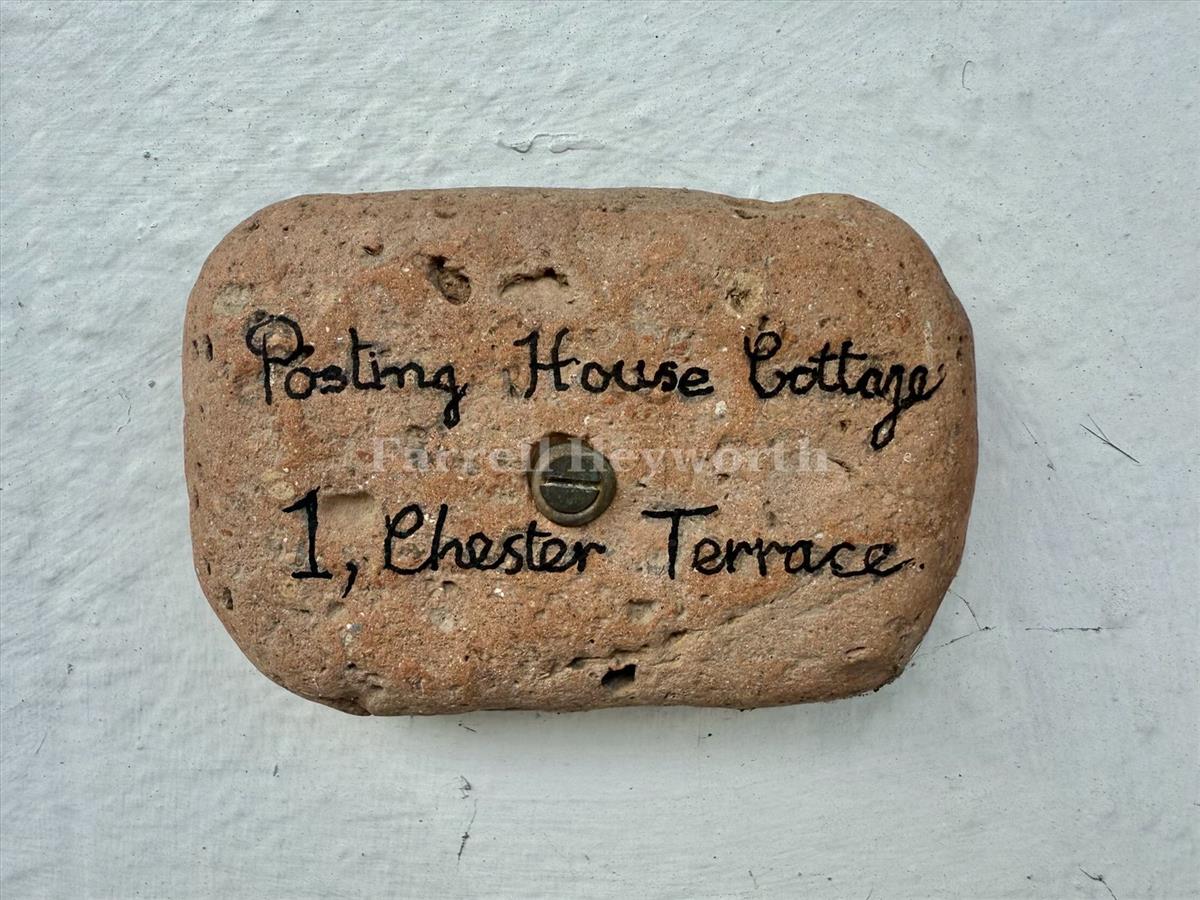 Posting House Cottage
Farrell Heyworth
1, Chester Terrace.